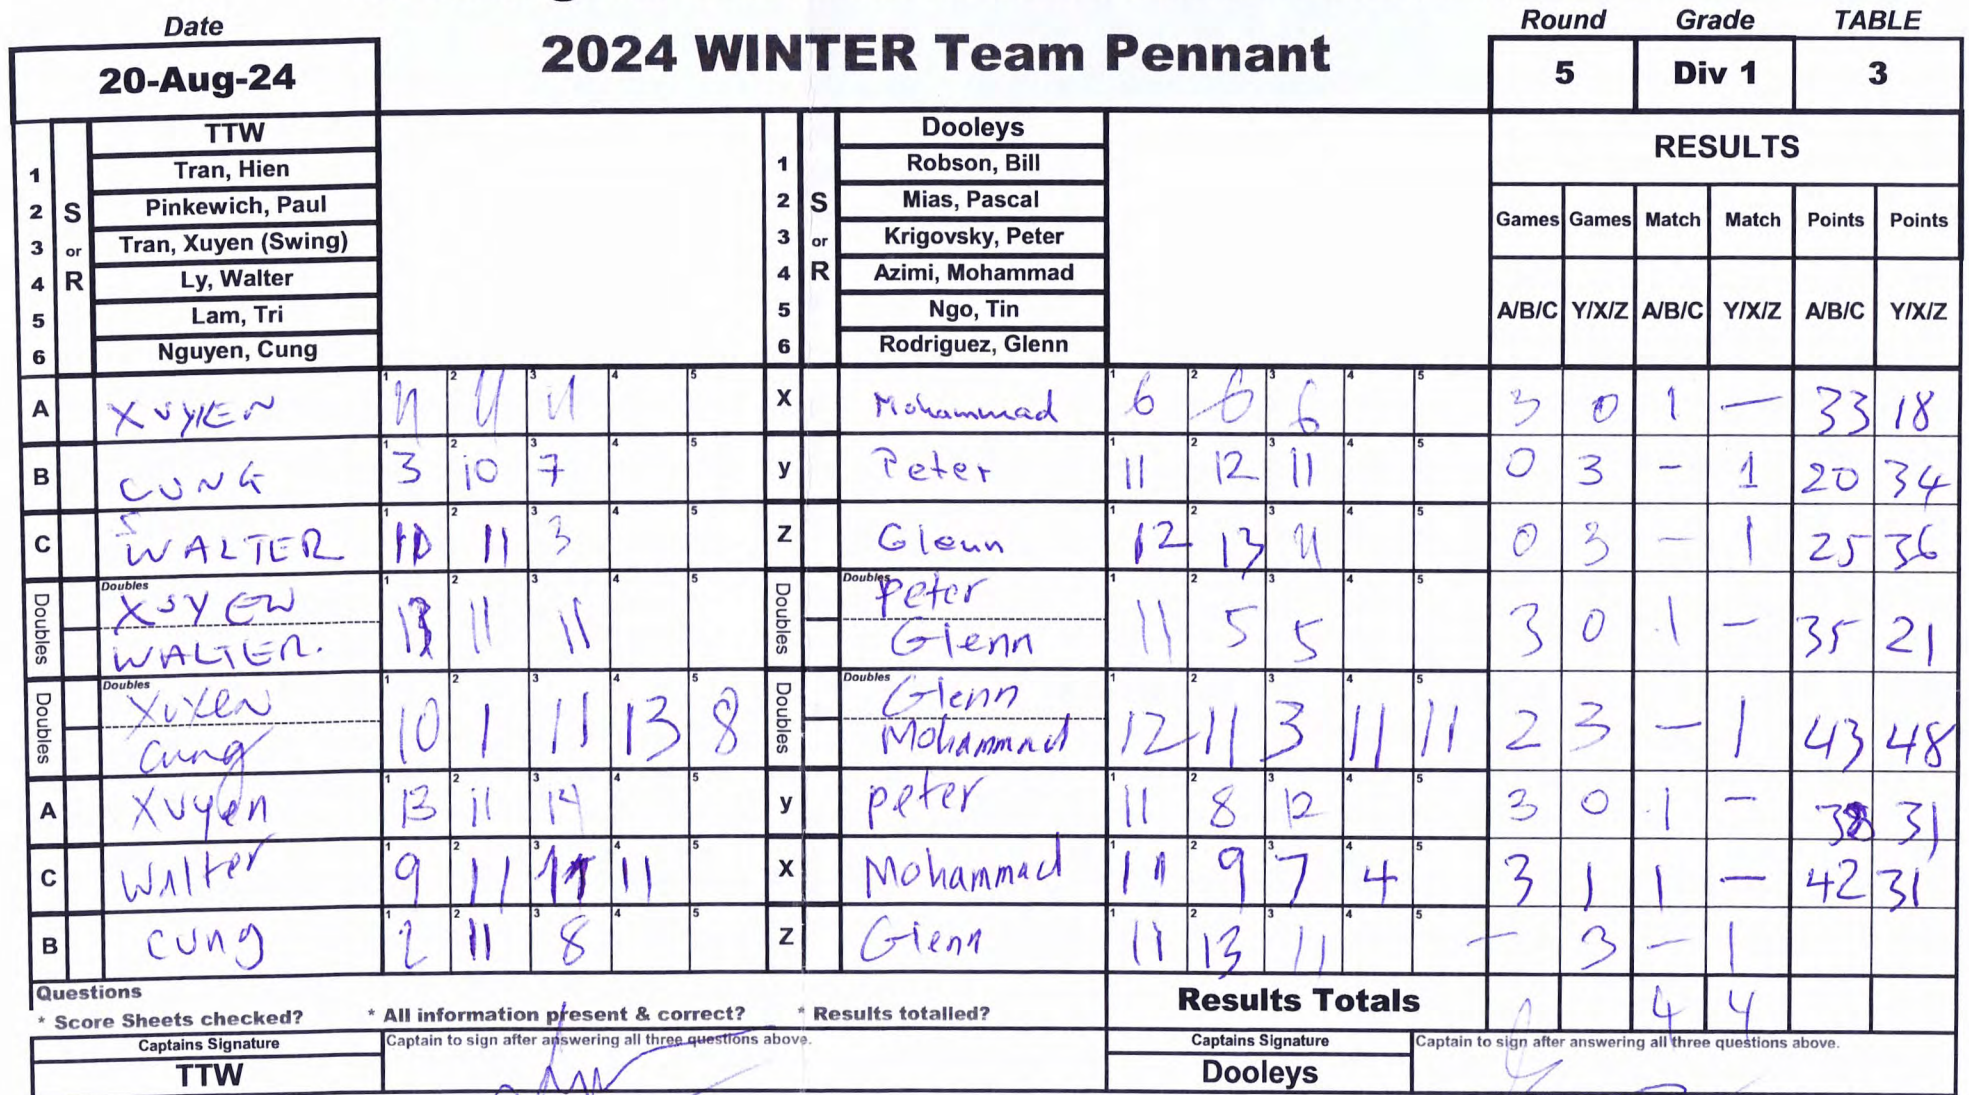 Date
20-Aug-24
2024 WINTER Team Pennant
Round Grade TABLE
5 Div 1 3
TTW
1 Tran, Hien
2 Pinkewich, Paul
3 Tran, Xuyen (Swing)
4 Ly, Walter
5 Lam, Tri
6 Nguyen, Cung
S or R
Dooleys
1 Robson, Bill
2 Mias, Pascal
3 Krigovsky, Peter
4 Azimi, Mohammad
5 Ngo, Tin
6 Rodriguez, Glenn
S or R
RESULTS
Games Games Match Match Points Points
A/B/C Y/X/Z A/B/C Y/X/Z A/B/C Y/X/Z
A XUYEN 11 11 11 X Mohammad 6 6 6 3 0 1 — 33 18
B CUNG 3 10 7 y Peter 11 12 11 0 3 - 1 20 34
C WALTER 11 3 Z Glenn 12 13 11 0 3 - 1 25 36
Doubles XUYEN 13 11 11 Doubles Peter 11 5 5 3 0 1 - 35 21
WALTER. Glenn
Doubles Xuyen 10 1 11 13 8 Doubles Glenn 12 11 3 11 11 2 3 - 1 43 48
Cung Mohammad
A Xuyen 13 11 14 y peter 11 8 12 3 0 1 - 38 31
C Walter 9 11 11 11 X Mohammad 11 9 7 4 3 1 1 - 42 31
B cung 2 11 8 Z Glenn 11 13 11 - 3 - 1
Questions
* Score Sheets checked? * All information present & correct? * Results totalled?
Results Totals 4 4
Captains Signature Captain to sign after answering all three questions above.
TTW
Captains Signature Captain to sign after answering all three questions above.
Dooleys